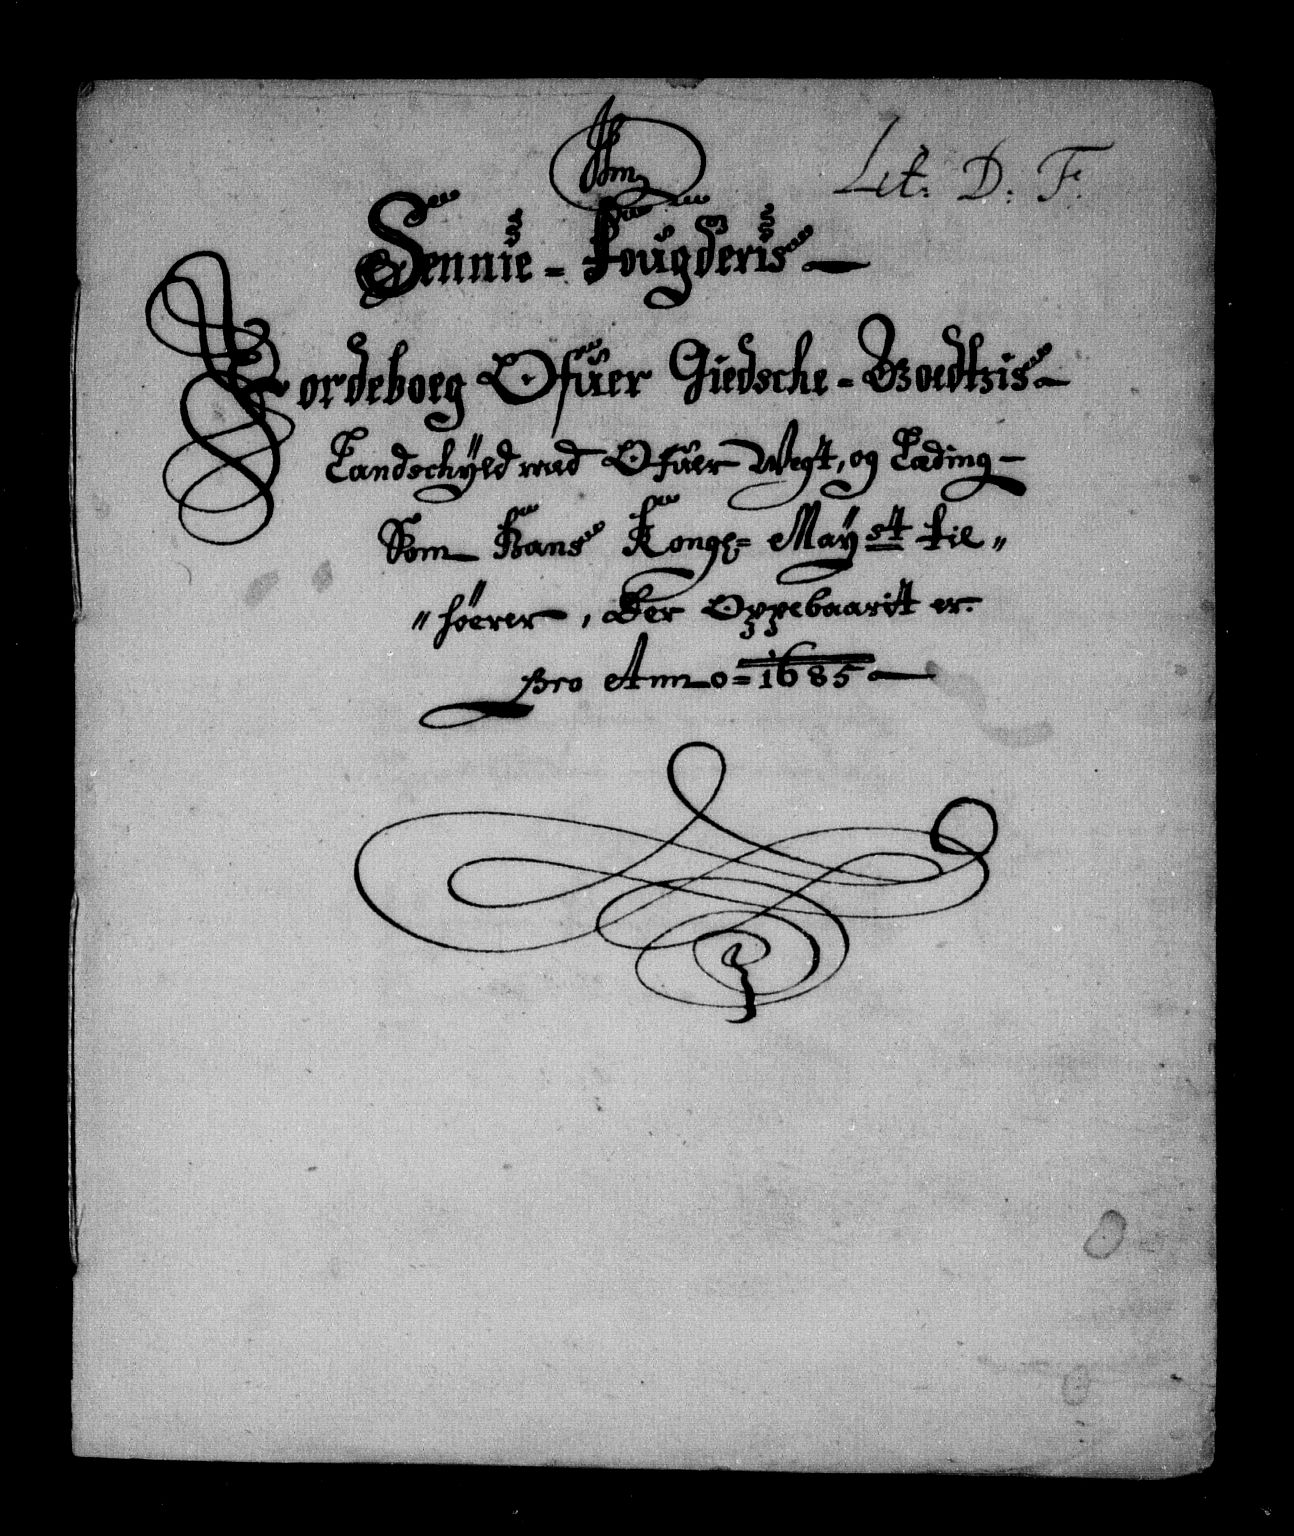 Lit. D. F.
Sennie - Fougderis
Jordeboeg Ofuer Giedsche - Goedtzis
Landschÿld med Ofuer Wegt, og Leding
Som Hans Kongl: Maÿst til„
„høerer, der Oppebaarit er.
Pro Anno = 1685